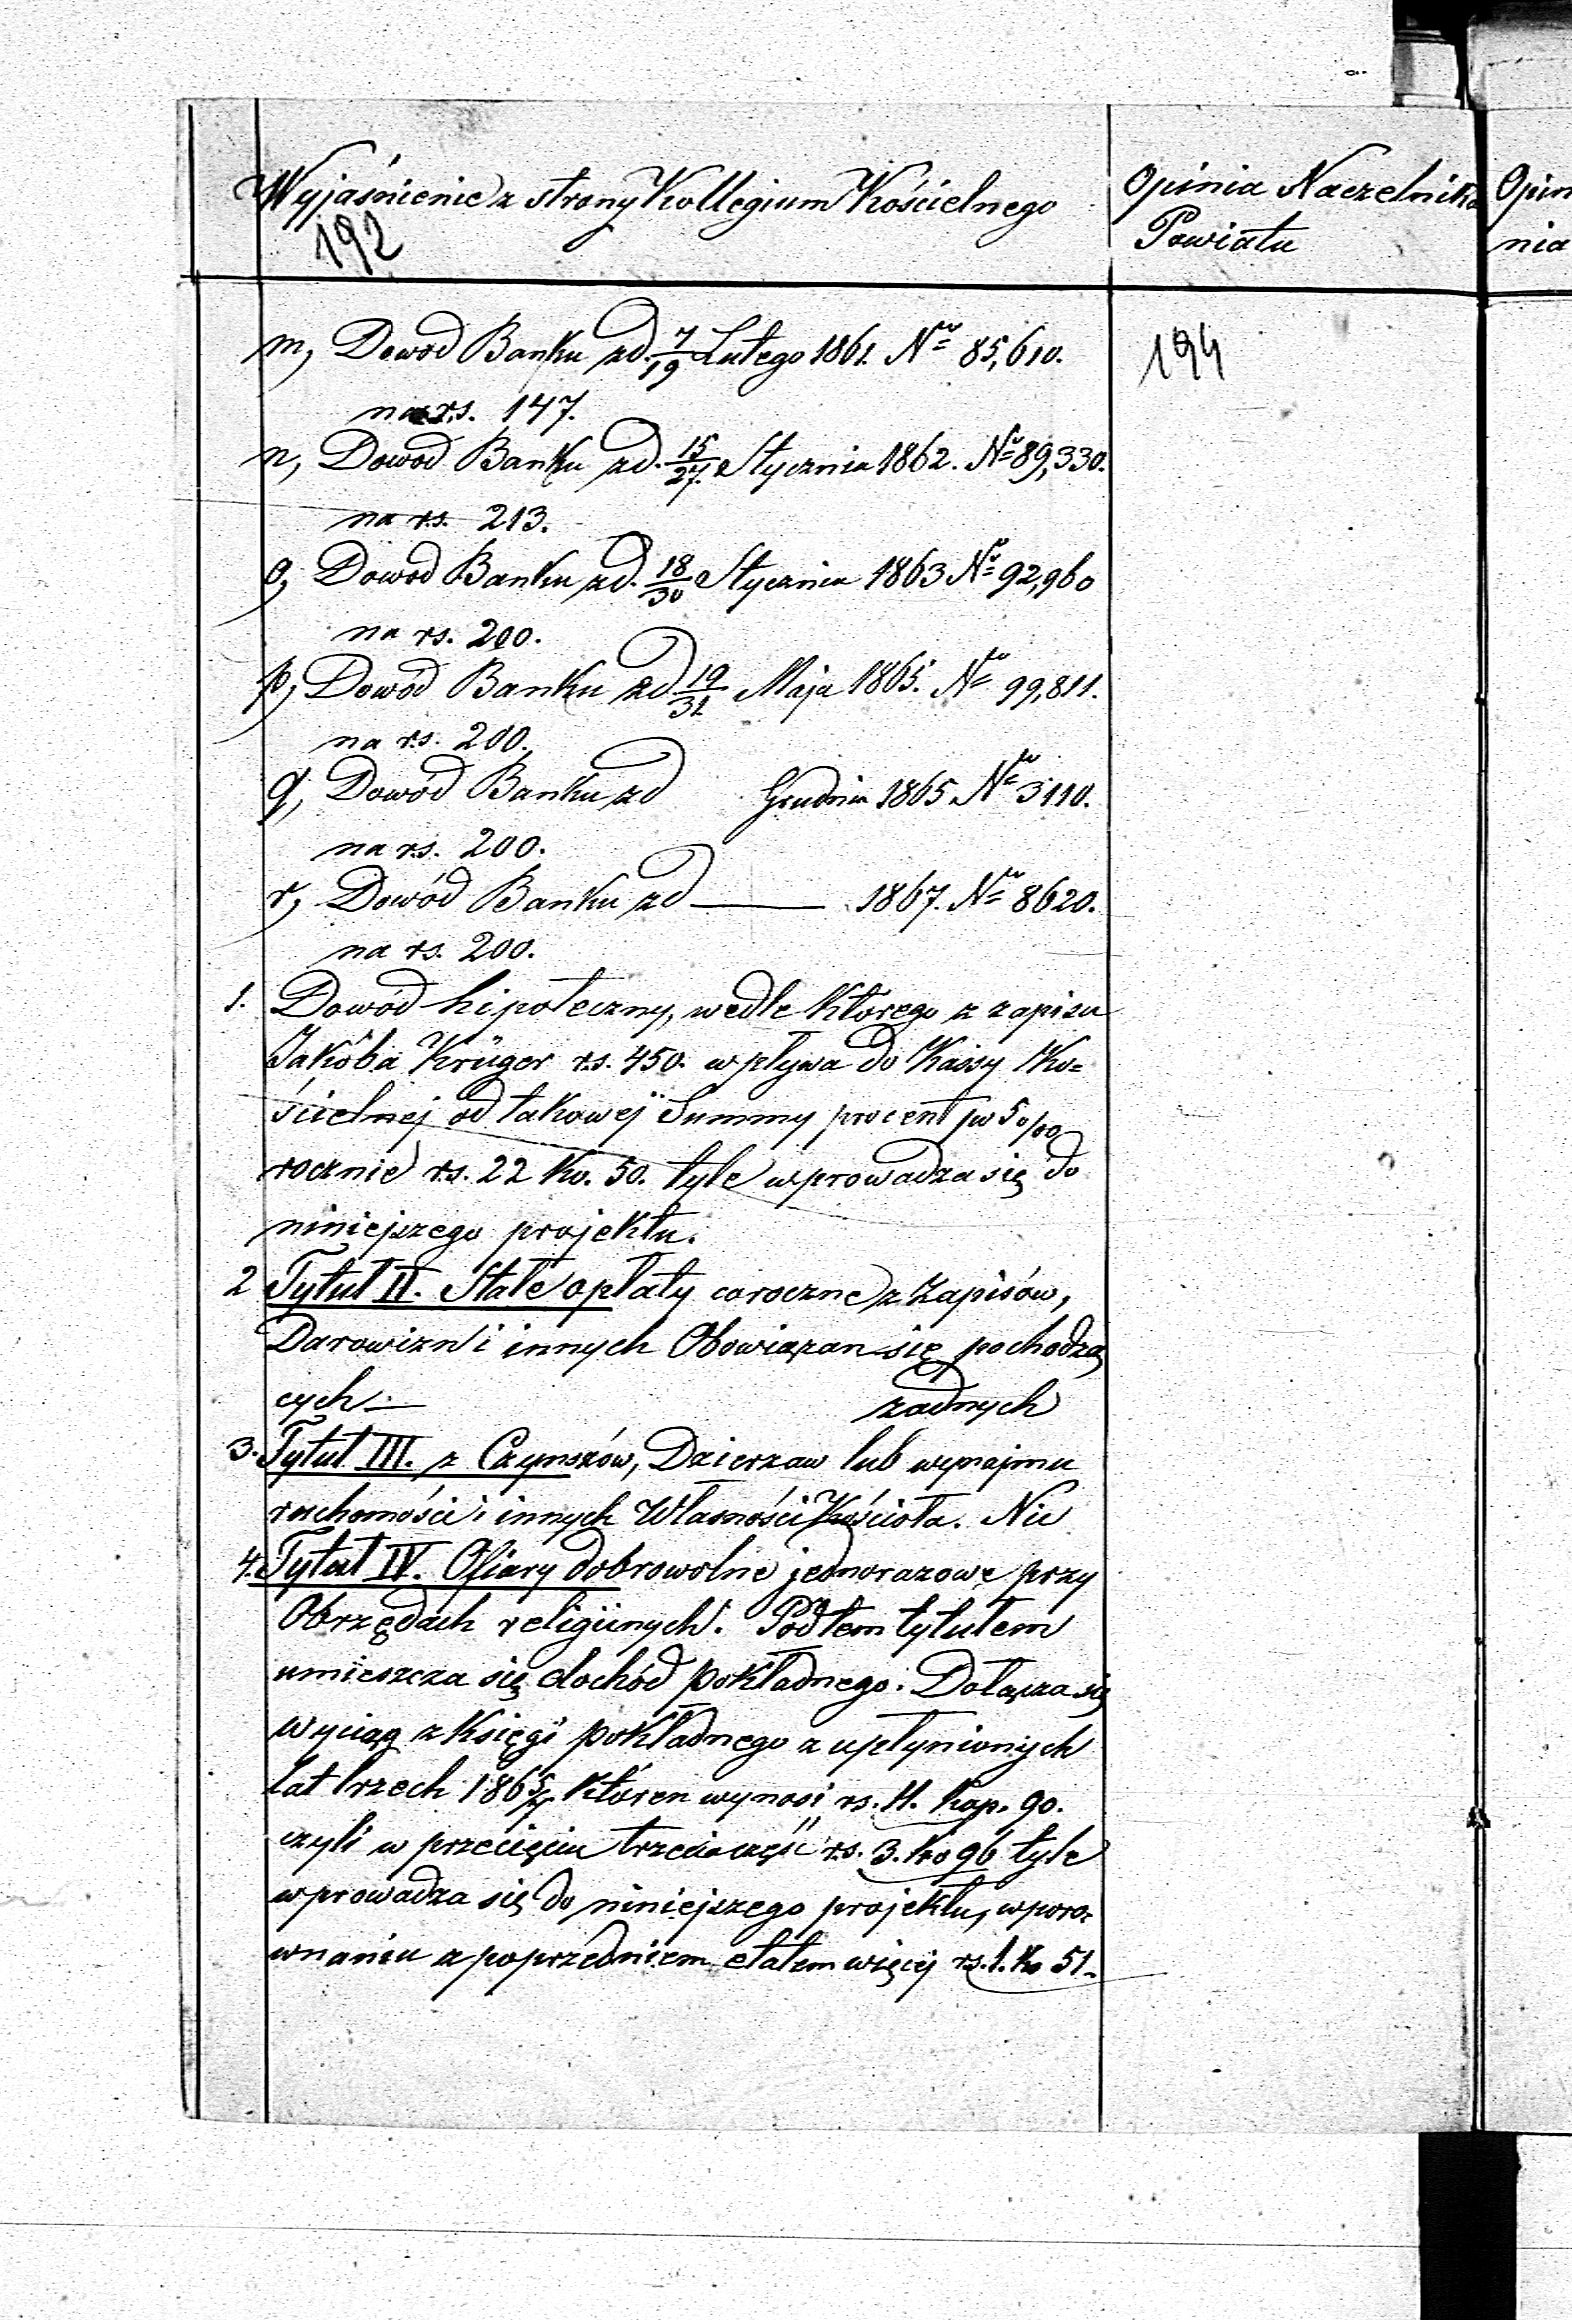 Wyjaśnienie z strony Kollegium Kościelnego
192
Opinia Naczelnika
Powiatu
Opin
nia
194
m, Dowód Banku zd. 7/19 Lutego 1861. No 85,610.
na rs. 147.
n, Dowod Banku zd. 15/27. Stycznia 1862. No 89,330.
na rs. 213.
o, Dowod Banku zd. 18/30 Stycznia 1863 No 92,960
na rs. 200.
p, Dowód Banku zd 19/31 Maja 1865. No 99,811.
na rs. 200.
q, Dowód Banku zd Grudnia 1865 No 3110.
na rs. 200.
r, Dowód Banku zd — 1867. No 8620.
na rs. 200.
1. Dowód hipoteczny, wedle którego z zapisu
Jakóba Krüger rs. 450. wpływa do Kassy Ko=
ścielnej od takowej Summy procent po 5 0/00
rocznie rs. 22 ko. 50. tyle wprowadza się do
niniejszego projektu.
2 Tytuł II. Stałe opłaty coroczne z Zapisów,
Darowizn i innych Obowiązan się pochodzą
cych — żadnych
3. Tytuł III. z Czynszów, Dzierzaw lub wynajmu
ruchomości i innych Własności Kościoła. Nic
4. Tytuł IV. Ofiary dobrowolne jednorazowe przy
Obrzędach religiinych. Pod tem tytułem
umieszcza się dochód pokładnego. Dołącza się
wyciąg z Księgi pokładnego z upłynionych
lat trzech 1865/7 któren wynosi rs. 11. kop. 90.
czyli w przecięciu trzecia część rs. 3. ko 96 tyle
wprowadza się do niniejszego projektu, w poro=
wnaniu z poprzedniem etatem więcej rs. 1. ko 51.